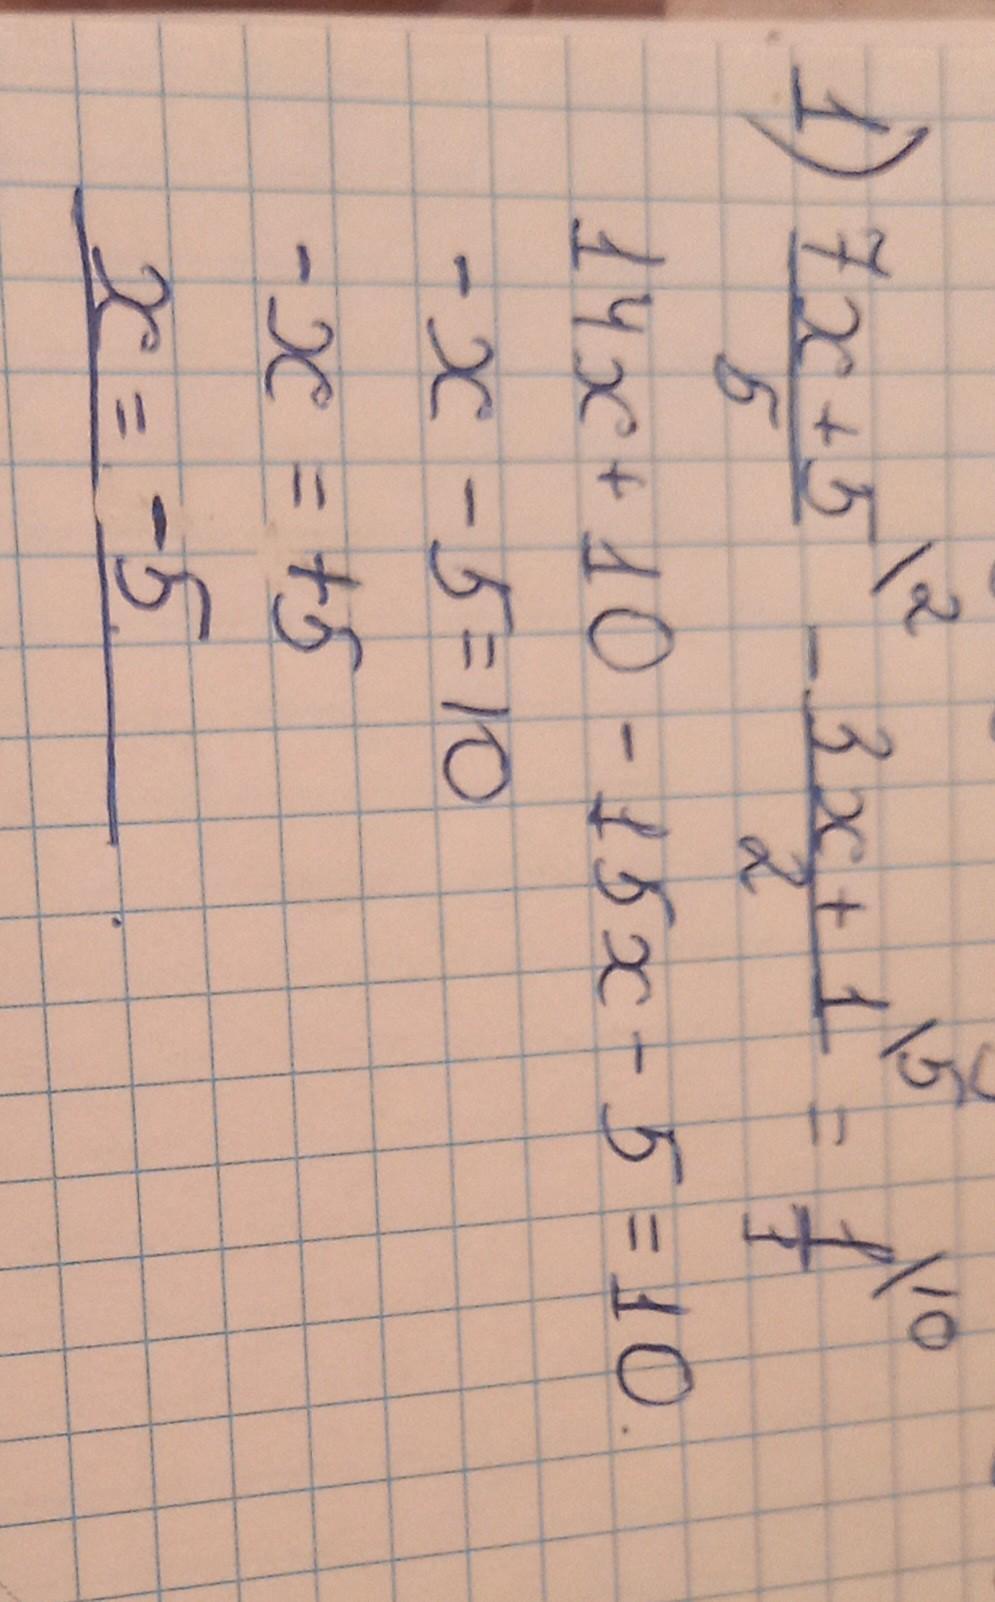 1) (7x+5)/5 \2 - (3x+1)/2 \5 = 1/1 \10
14x+10-15x-5=10.
-x-5=10
-x=+5
x=-5